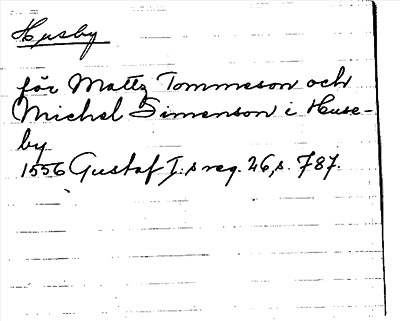 Husby
för Mattz Tommeson och
Michel Simenson i Huse-
by
1556 Gustaf I:s reg. 26, s. 787.